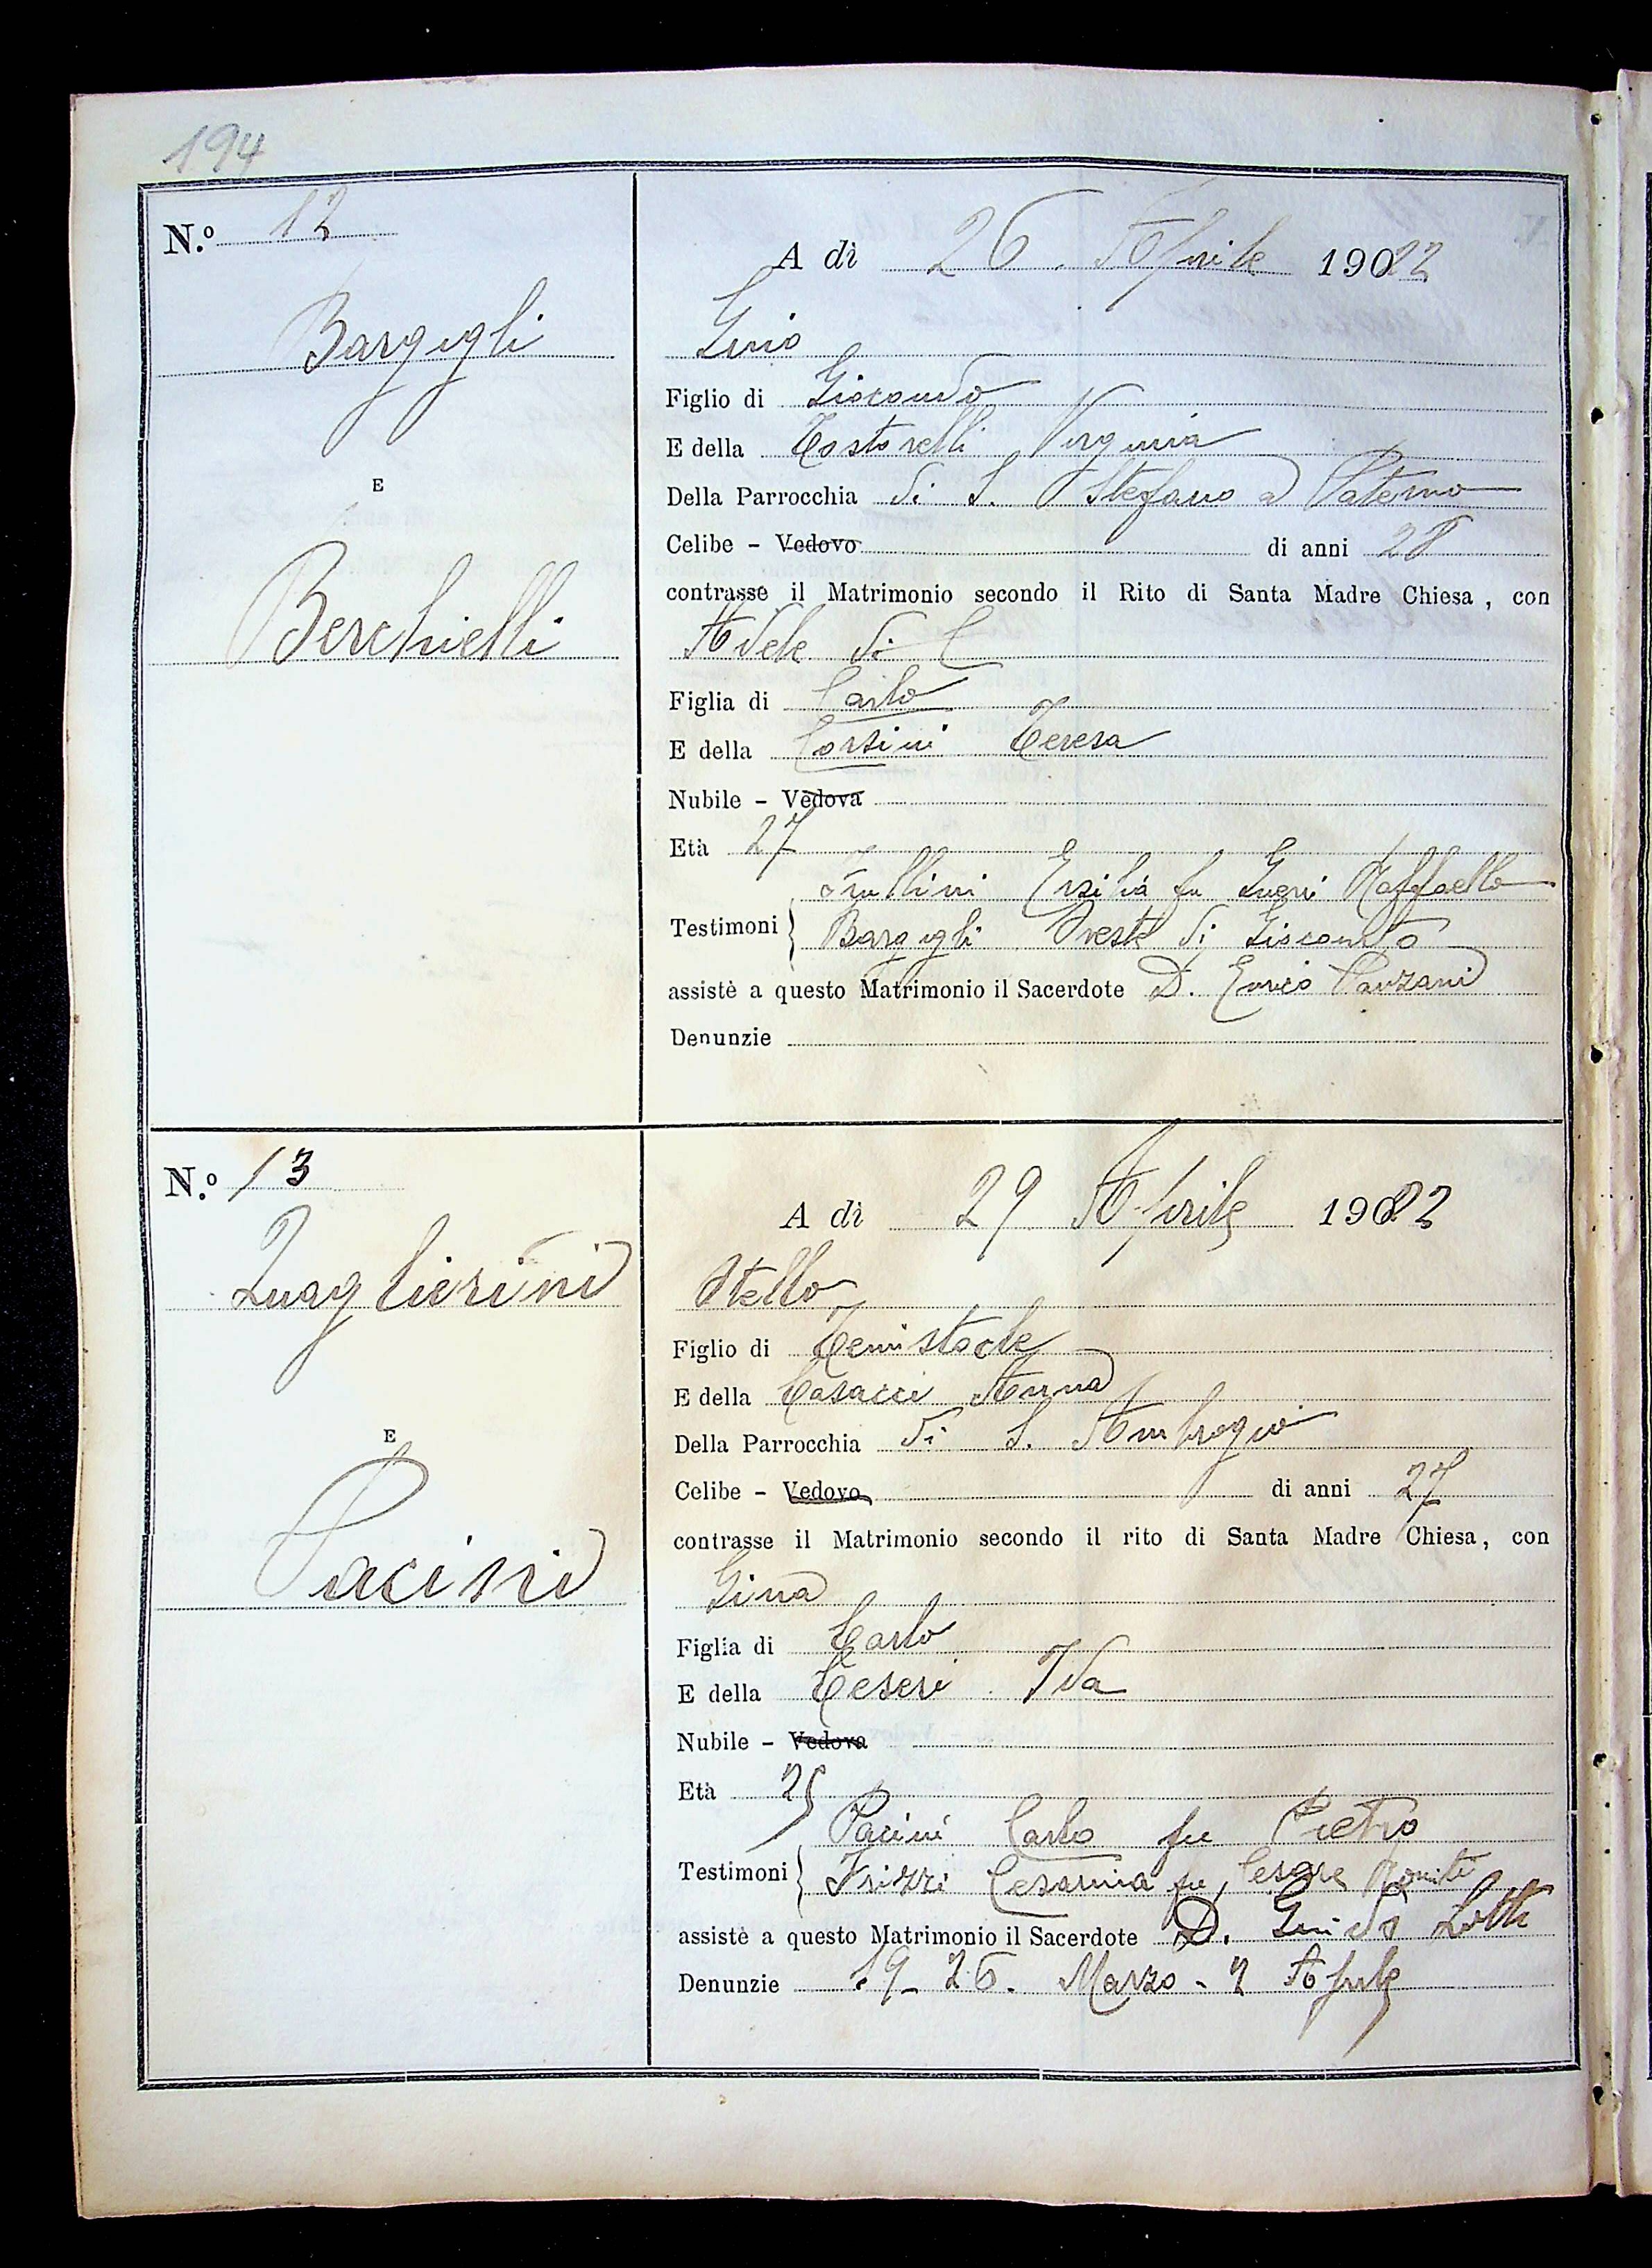 194
N.º 12
A dì 26. Aprile 1922
Bargigli
Gino
Figlio di Giocondo
E della Tostorelli Virginia
Della Parrocchia di S. Stefano a Paterno
E
Celibe - Vedovo di anni 28
contrasse il Matrimonio secondo il Rito di Santa Madre Chiesa, con
Berchielli
Adele di C
Figlia di Carlo
E della Corsini Teresa
Nubile - Vedova
Età 27
Frullini Ersilia fu Raffaello
Testimoni Bargigli Oreste di Giocondo
assistè a questo Matrimonio il Sacerdote D. Enrico Panzani
Denunzie
N.º 13
A dì 29 Aprile 1922
Quaglierini
Stello
Figlio di Temistocle
E della Casacci Anna
Della Parrocchia di S. Ambrogio
E
Celibe - Vedovo di anni 27
contrasse il Matrimonio secondo il rito di Santa Madre Chiesa, con
Pacini
Gina
Figlia di Carlo
E della Ceseri Ida
Nubile - Vedova
Età 25
Pacini Carlo fu Pietro
Testimoni Frizzi Cesarina fu Cesare
assistè a questo Matrimonio il Sacerdote D. Guido Lotti
Denunzie 19-26. Marzo - 2 Aprile